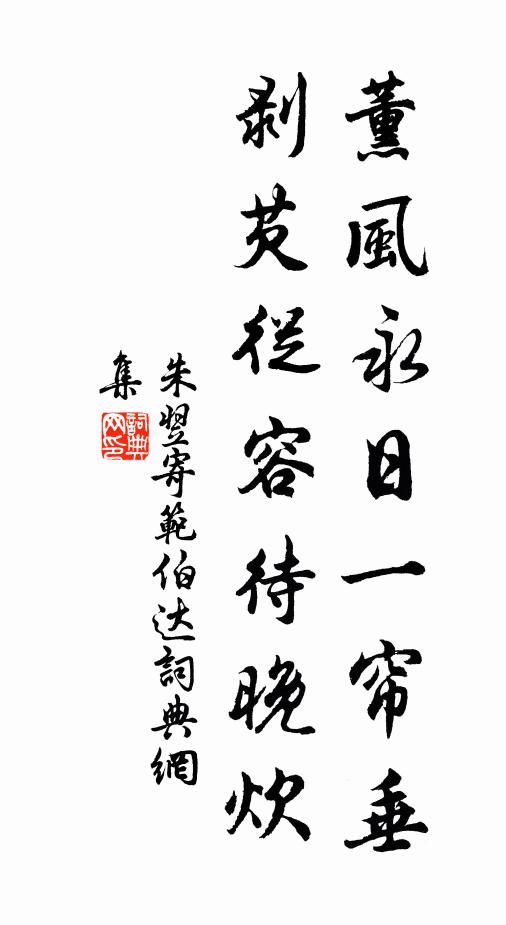 薰風永日一帘垂
剥芡從容待晚炊
朱翌寄範伯达詞典網
集
詞典网印